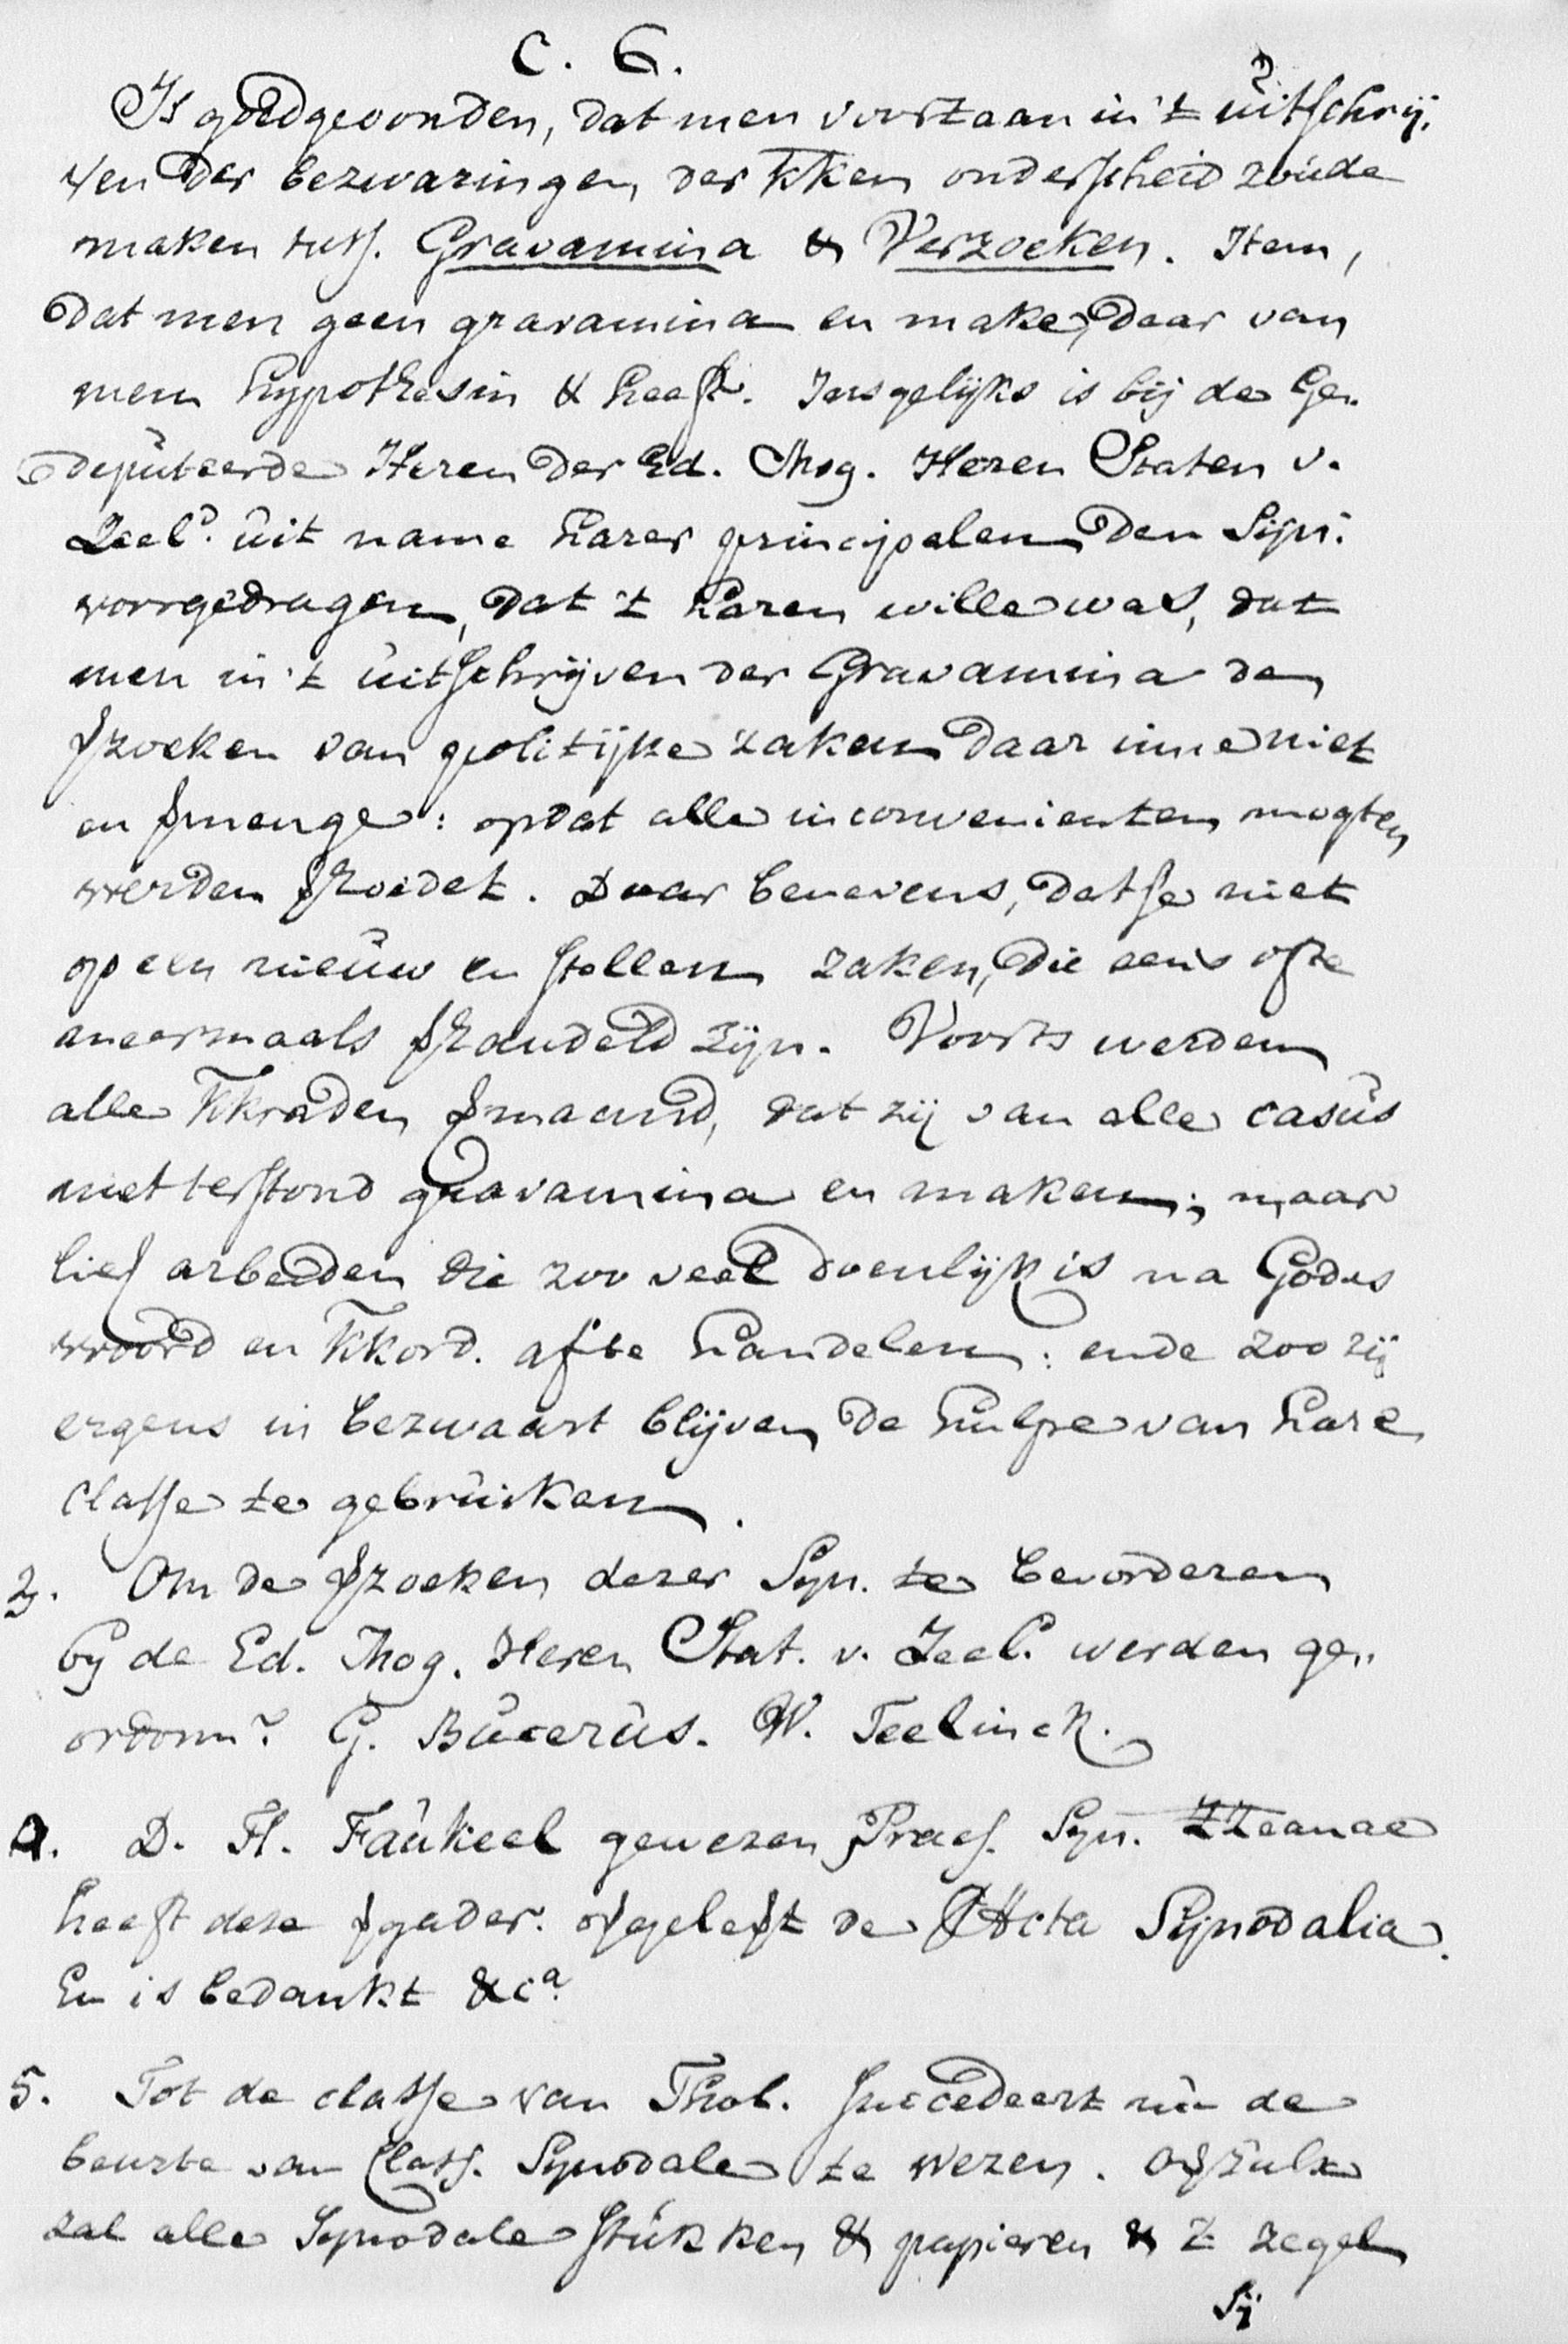 C. 6.
Is goedgevonden, dat men voortaan in 't uitschrij-
ven der bezwaringen der kken onderscheid zoude
maken tuss. Gravamina & Verzoeken. Item,
dat men geen gravamina en make, daar van
men hypothesin & heeft. Insgelijks is bij de Ge-
deputeerde Heren der Ed. Mog. Heren Staten v.
Zeeld. uit name harer principalen den Syn.
voorgedragen, dat 't haren wille was, dat
men in 't uitschrijven der Gravamina de
szoeken van politijke zaken daar inne niet
en smenge: opdat alle inconvenienten mogten
werden shoedet. Daar benevens, datse niet
op een nieuw en stellen zaken, die eens ofte
meermaals shandeld zijn. Voorts werden
alle kkraden smaand, dat zij van alle casus
metterstond gravamina en maken; maar
lies arbeiden die zoo veel doenlijk is na Godes
woord en kkord. af te handelen: ende zoo zij
ergens in bezwaart blijven de hulpe van hare
classe te gebruiken.
3. Om de szoeken dezer Syn. te bevorderen
by de Ed. Mog. Heren Stat. v. Zeel. werden ge-
ordonn. G. Bucerus. W. Teelinck.
4. D. H. Faukeel gewezen Praes. Syn. Zeanae
heeft deze sgader. opgelest de Acta Synodalia.
En is bedankt &ca.
5. Tot de classe van Thol. succedeert nu de
beurte van Class. Synodale te wezen. Oszulx
zal alle Synodale stukken & papieren & 't zegel
bij